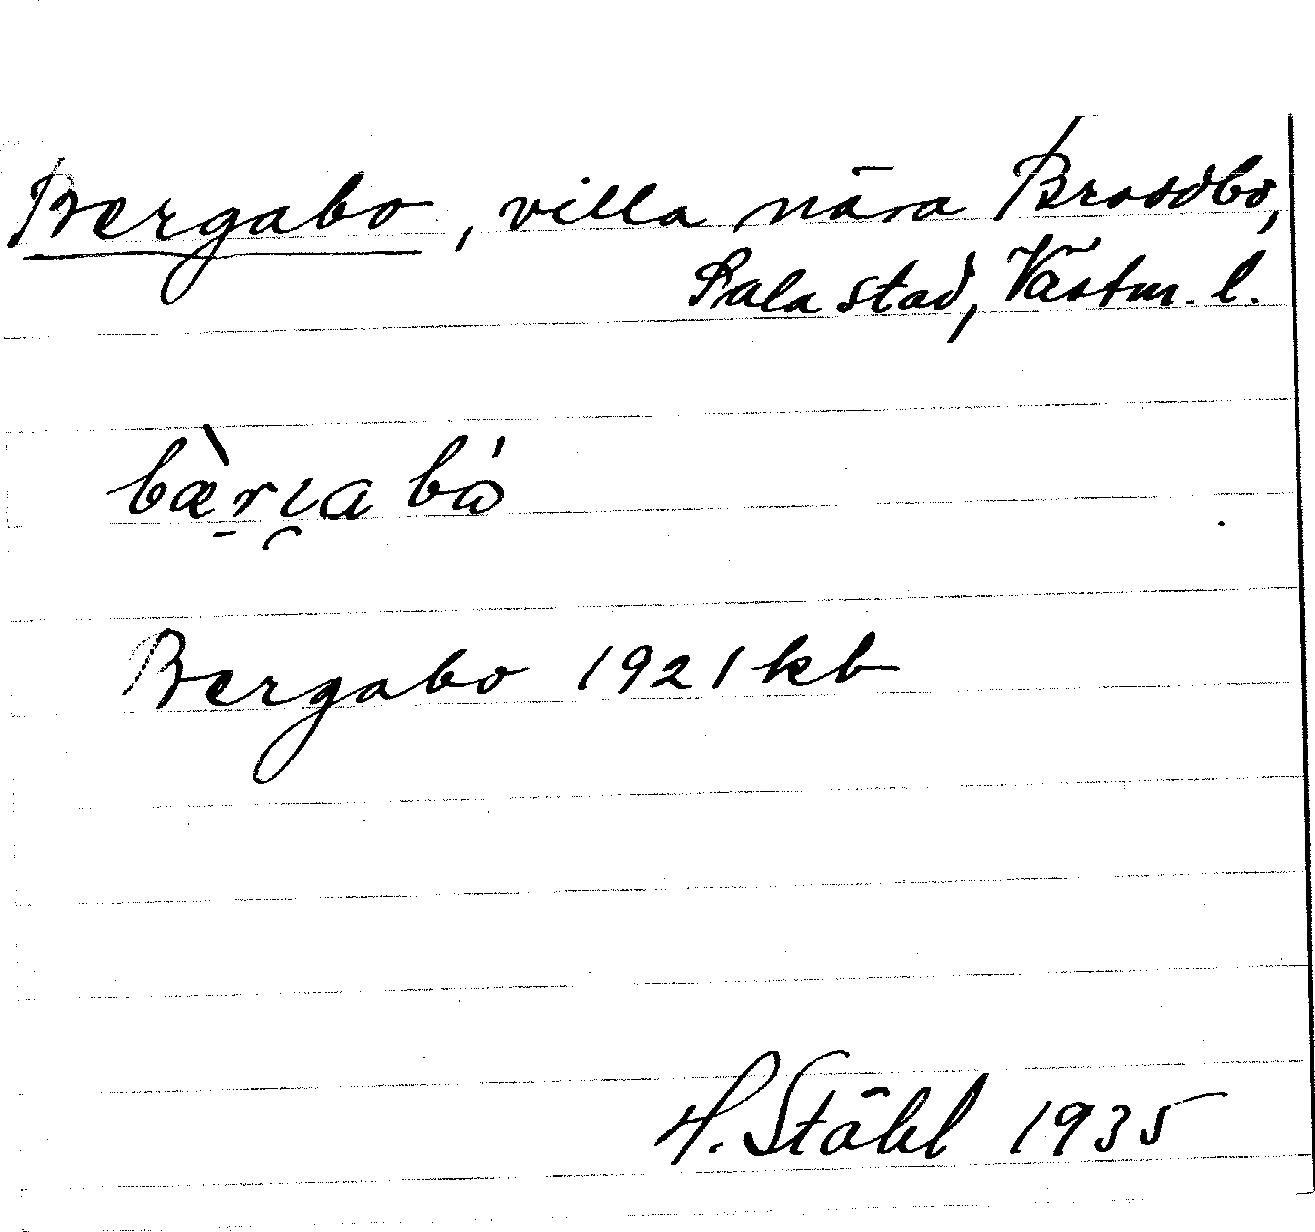 Bergabo, villa nära Brodbo,
Sala stad, Västm. l.
Bergabo 1921 kb
H. Ståhl 1935